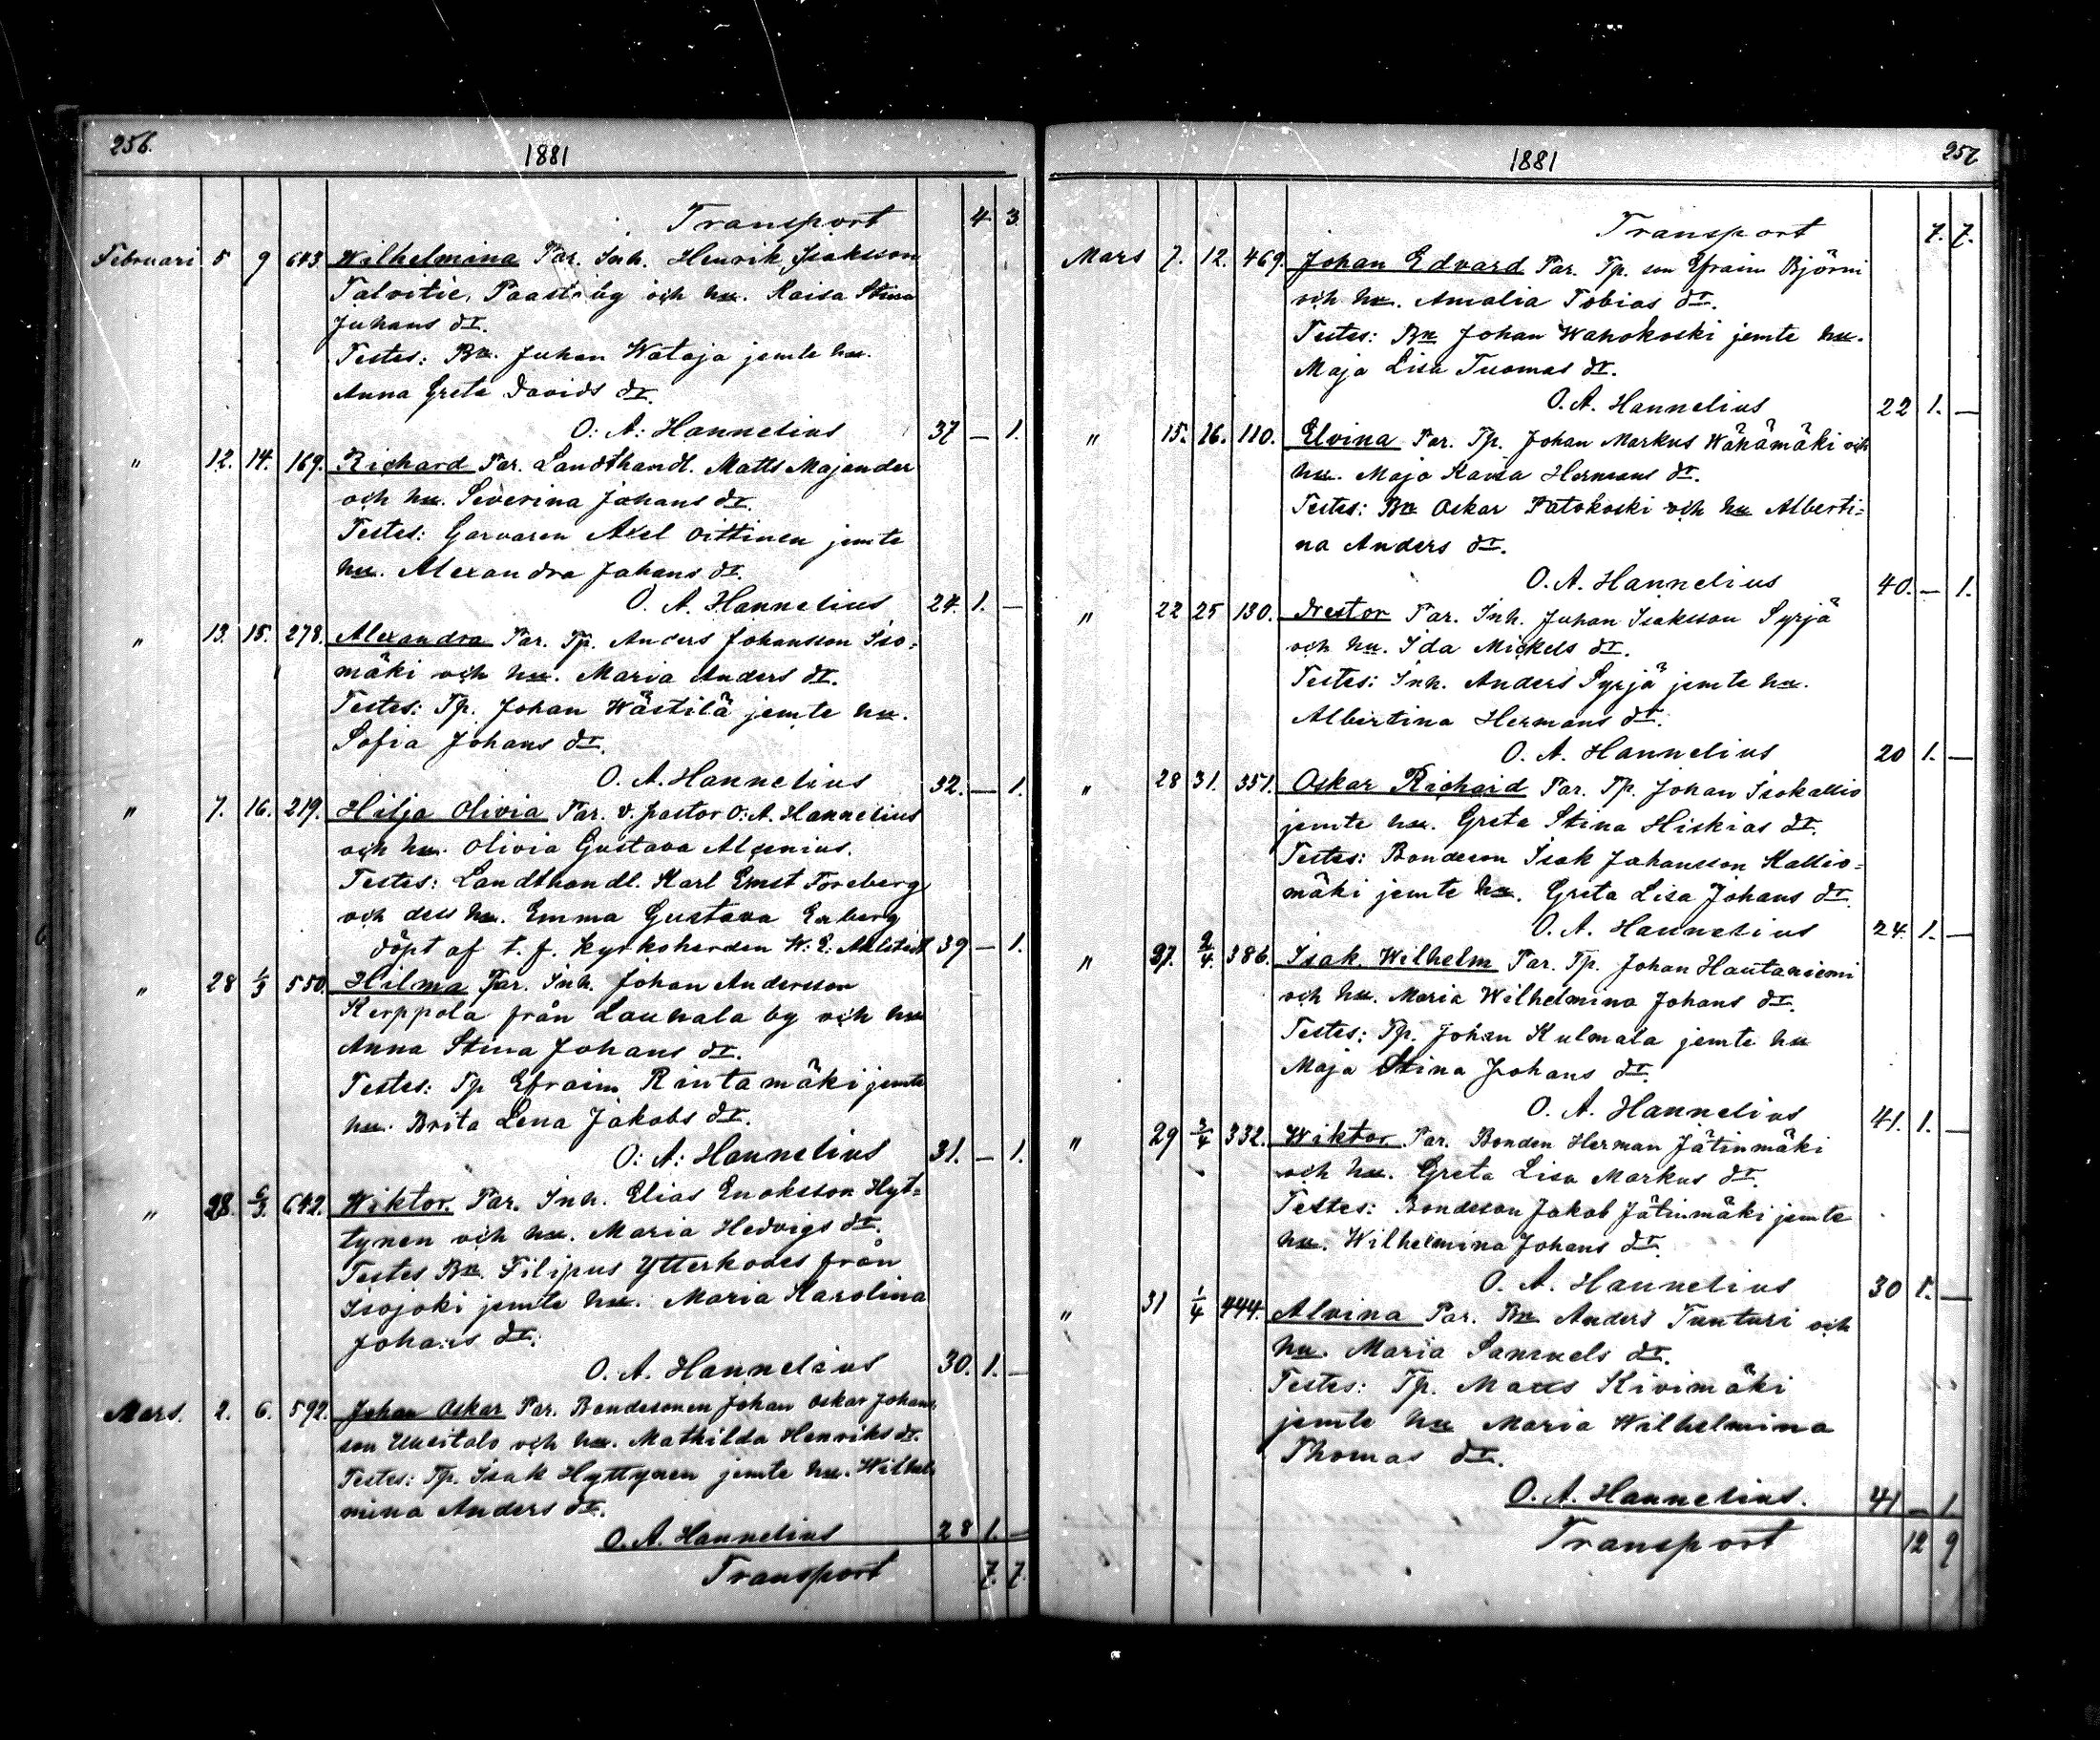 256.
1881
Transport 4 3
Februari 5 9 643 Wilhelmina Par. Inh. Henrik Isaksson
Talvitie, Paasti by och hu. Kaisa Stina
Juhans dr.
Testes: Bn. Juhan Wataja jemte hu.
Anna Greta Davids dr.
O: A: Hannelius 37 — 1.
" 12. 14. 169. Richard Par. Landthandl. Matts Majander
och hu. Severina Johans dr.
Testes: Garvaren Axel Oittinen jemte
hu. Alexandra Johans dr.
O. A. Hannelius 24. 1. —
" 13. 15. 278. Alexandra Par. Tp. Anders Johansson Iso-
mäki och hu. Maria Anders dr.
Testes: Tp. Johan Wästilä jemte hu.
Sofia Johans dr.
O. A. Hannelius 32. — 1.
" 7. 16. 219. Hilja Olivia Par. v. pastor O: A. Hannelius
och hu. Olivia Gustava Alcenius.
Testes: Landthandl. Karl Ernst Forsberg
och dess hu. Emma Gustava Enberg
döpt af t. f. Kyrkoherden W: E: Ahlstedt 39 — 1.
" 28 1/3 550. Hilma Par. Inh. Johan Andersson
Kerppola från Lauhala by och hu
Anna Stina Johans dr.
Testes: Tp Efraim Rintamäki jemte
hu. Brita Lena Jakobs dr.
O: A: Hannelius 31. — 1.
" 28. 6/3. 642. Wiktor. Par. Inh. Elias Enoksson Hyt-
tynen och hu. Maria Hedvigs dr.
Testes Bn. Filipus Ytterkodes från
Isojoki jemte hu. Maria Karolina
Johans dr.
O. A. Hannelius 30. 1. —
Mars. 2. 6. 592. Johan Oskar Par. Bondesonen Johan Oskar Johans-
son Uusitalo och hu. Mathilda Henriks dr.
Testes: Tp. Isak Hyttynen jemte hu. Wilhel-
mina Anders dr.
O. A. Hannelius 28 1. —
Transport 7. 7.
257
1881
Transport 7. 7.
Mars 7. 12. 469. Johan Edvard Par. Tp. son Efraim Björni
och hu. Amalia Tobias dr.
Testes: Bn Johan Wahokoski jemte hu.
Maja Lisa Tuomas dr.
O. A. Hannelius 22 1. —
" 15. 16. 110. Elvina Par. Tp. Johan Markus Wähämäki och
hu. Maja Kaisa Hermans dr.
Testes: Bn Oskar Patokoski och hu Alberti-
na Anders dr.
O. A. Hannelius 40. — 1.
" 22 25 130. Nestor Par. Inh. Juhan Isaksson Syrjä
och hu. Ida Mickels dr.
Testes: Inh. Anders Syrjä jemte hu.
Albertina Hermans dr.
O. A. Hannelius 20 1. —
" 28 31. 351. Oskar Richard Par. Tp. Johan Isokallio
jemte hu. Greta Stina Hiskias dr.
Testes: Bondeson Isak Johansson Kallio-
mäki jemte hu. Greta Lisa Johans dr.
O. A. Hannelius 24. 1. —
" 27. 2/4. 386. Isak Wilhelm Par. Tp. Johan Hautaniemi
och hu. Maria Wilhelmina Johans dr.
Testes: Tp. Johan Kulmala jemte hu
Maja Stina Johans dr.
O. A. Hannelius 41. 1. —
" 29 3/4 332. Wiktor Par. Bonden Herman Jätinmäki
och hu. Greta Lisa Markus dr.
Testes: Bondeson Jakob Jätinmäki jemte
hu. Wilhelmina Johans dr.
O. A. Hannelius 30 1. —
" 31 1/4 444. Alvina Par. Bn Anders Tunturi och
hu. Maria Samuels dr.
Testes: Tp. Matts Kivimäki
jemte hu Maria Wilhelmina
Thomas dr.
O. A. Hannelius. 41 — 1
Transport 12 9